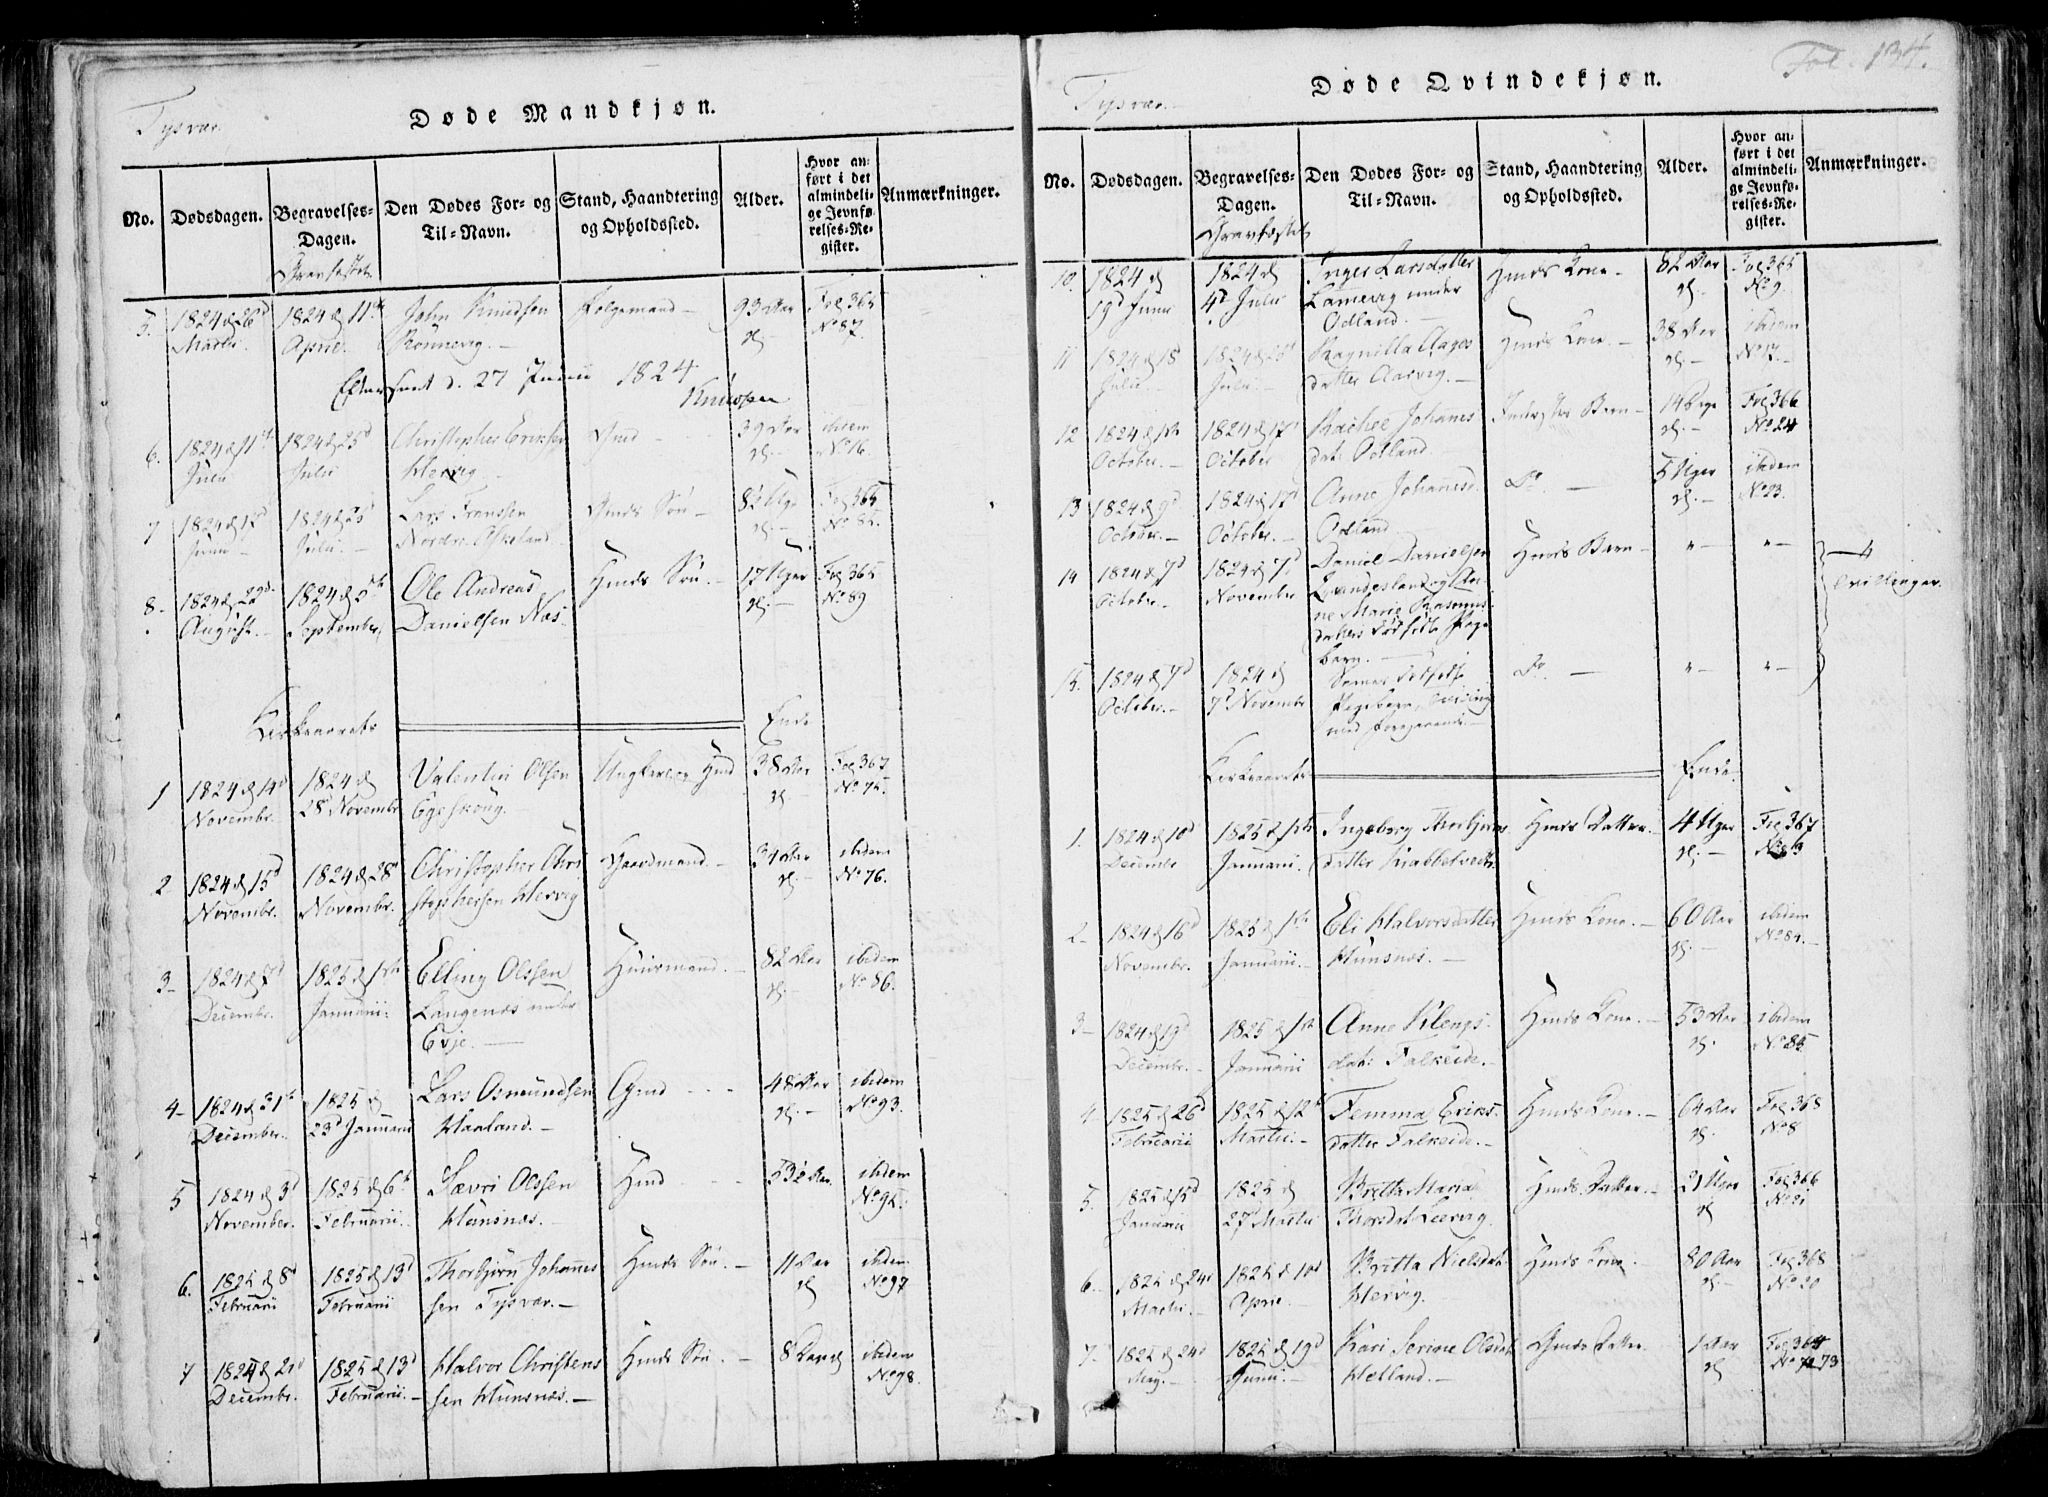 Tysvær.
Døde Mandkjøn.
No.
Dødsdagen.
Begravelses-
Dagen.
Den Dødes For- og
Til-Navn.
Stand, Haandtering
og Opholdssted.
Alder.
Hvor an-
ført i det
almindeli-
ge Jevnfø-
relses-Re-
gister.
Anmærkninger.
5.
1824 d 26d
Martii.
1824 d 11te
April.
John Knudsen
Rönnevig.
Folgemand
93 Aar
Fol 365
No 87.
d. 27 Junii 1824
6.
1824 d 11te
Julii
1824 d 25d
Julii
Christopher Eriksen
Hervig
Gmd
39 Aar
ibidem
No 16.
7
1824 d 12d
Junii
1824 d 25d
Julii.
Lars Franssen
Nordre Askeland.
Gmds Sön
Fol 365
8.
1824 d 22d
August.
1824 d 5te
September,
Ole Andreas
Danielsen Næs.
Hmds Sön.
17 Uger
Fol 365
No 89
Kirkeaarets
Ende
1
1824 d 14d
Novembr.
1824 d
28d Novembr.
Valentin Olsen
Egeskoug.
Ungkarl og Hmd
38 Aar
Fol 367
No 75.
2
1824 d 15d
Novembr.
1824 d 28d
Novembr.
Christopher Chri
stophersen Hervig
Gaardmand.
31 Aar
ibidem
No 76.
3
1824 d 7d
Decembr.
1825 d 1ste
Januarii.
Elling Olssen
Langenæs under
Evje.
Huusmand.
82 Aar
ibidem
No 86.
4
1824 d 31te
December.
1825 d
23d Januarii
Lars Osmundsen
Haaland.
Gmd
48 Aar
ibidem
No 93.
5
1824 d 3d
November.
1825 d 6te
Februarii.
Sævri Olssen
Hunsnæs.
Hmd
53½ Aar.
ibidem
No 94.
6.
1825 d 8d
Februarii
1825 d 13d
Februarii
Thorbjörn Johannes
sen Tysvær.
Hmds Sön.
11 Aar
ibidem
No 97
7
1824 d 21d
Decembr.
1825 d 13d
Februarii.
Halvor Christens
sen Hunsnæs.
Hmds Sön.
8 Dage
ibidem
No 98.
Fol. 134.
Tysvær.
Døde Qvindekjøn.
No.
Dødsdagen.
Begravelses-
Dagen.
Den Dødes For- og
Til-Navn.
Stand, Haandtering
og Opholdssted.
Alder.
Hvor an-
ført i det
almindeli-
ge Jevnfø-
relses-Re-
gister.
Anmærkninger.
10.
1824 d
19d Junii
1824 d
4de Julii
Inger Larsdatter
under
Odland.
Hmds Kone
82 Aar
Fol 365
No 9.
11
1824 d 18
Julii
1824 d 25d
Julii.
Ragnilla Aages
datter Aarvig.
Hmds Kone.
38 Aar
ibidem
No 17.
12
1824 d 1ste
October.
1824 d 17d
October
Rachel Johannes
dat. Odland
Barn
14 Dage
Fol 366
No 24
13
1824 d 9d
October.
1824 d 17d
October.
Anne Johannesd.
Odland
Do
5 Uger
ibidem
No 23.
14
1824 d 7d
October.
1824 d 7d
November
Daniel Danielsen
Landesland og An-
ne Marie Rasmus-
datters dödfödte Pige
barn.
Hmds Barn
"
"
Tvillinger.
15.
1824 d 7d
October.
1824 d
7d Novembr
Sammes dödfödte
Pigebarn, Tvilling
med foregaaende
Do
"
"
Kirkeaarets
Ende.
1.
1824 d 10d
Decembr
1825 d 1ste
Januarii.
Ingeborg Thorbjörns
datter Krabbetvedt.
Hmds Datter.
4 Uger
Fol 367
2.
1824 d 16d
Novembr.
1825 d 1ste
Januarii.
Eli Halvorsdatter
Hunsnæs.
Hmds Kone.
60 Aar
ibidem
No 84.
3
1824 d 19d
Decembr.
1825 d 1ste
Januarii
Anne Klengs-
dat: Falkeide.
Hmds Kone.
53 Aar
ibidem
No 85.
4
1825 d 26d
Februarii
1825 d 12te
Martii.
Femma Eriks-
datter Falkeide.
Hmds Kone.
64 Aar
Fol 368
No 8
5.
1825 d 5d
Januarii
1825 d
27d Martii
Britta Maria
Thorsdat Leervig.
Hmds Datter.
21 Uger
Fol 366
6.
1825 d 24d
Martii.
1825 d 10d
April.
Britta Nielsdat
Hervig.
Hmds Kone.
80 Aar
Fol 368
No 20
7.
1825 d 24d
May.
1825 d 19d
Junii.
Kari Serine Olsdat
Hetland.
Gmds Datter.
1 Aar
Fol 364
No 73